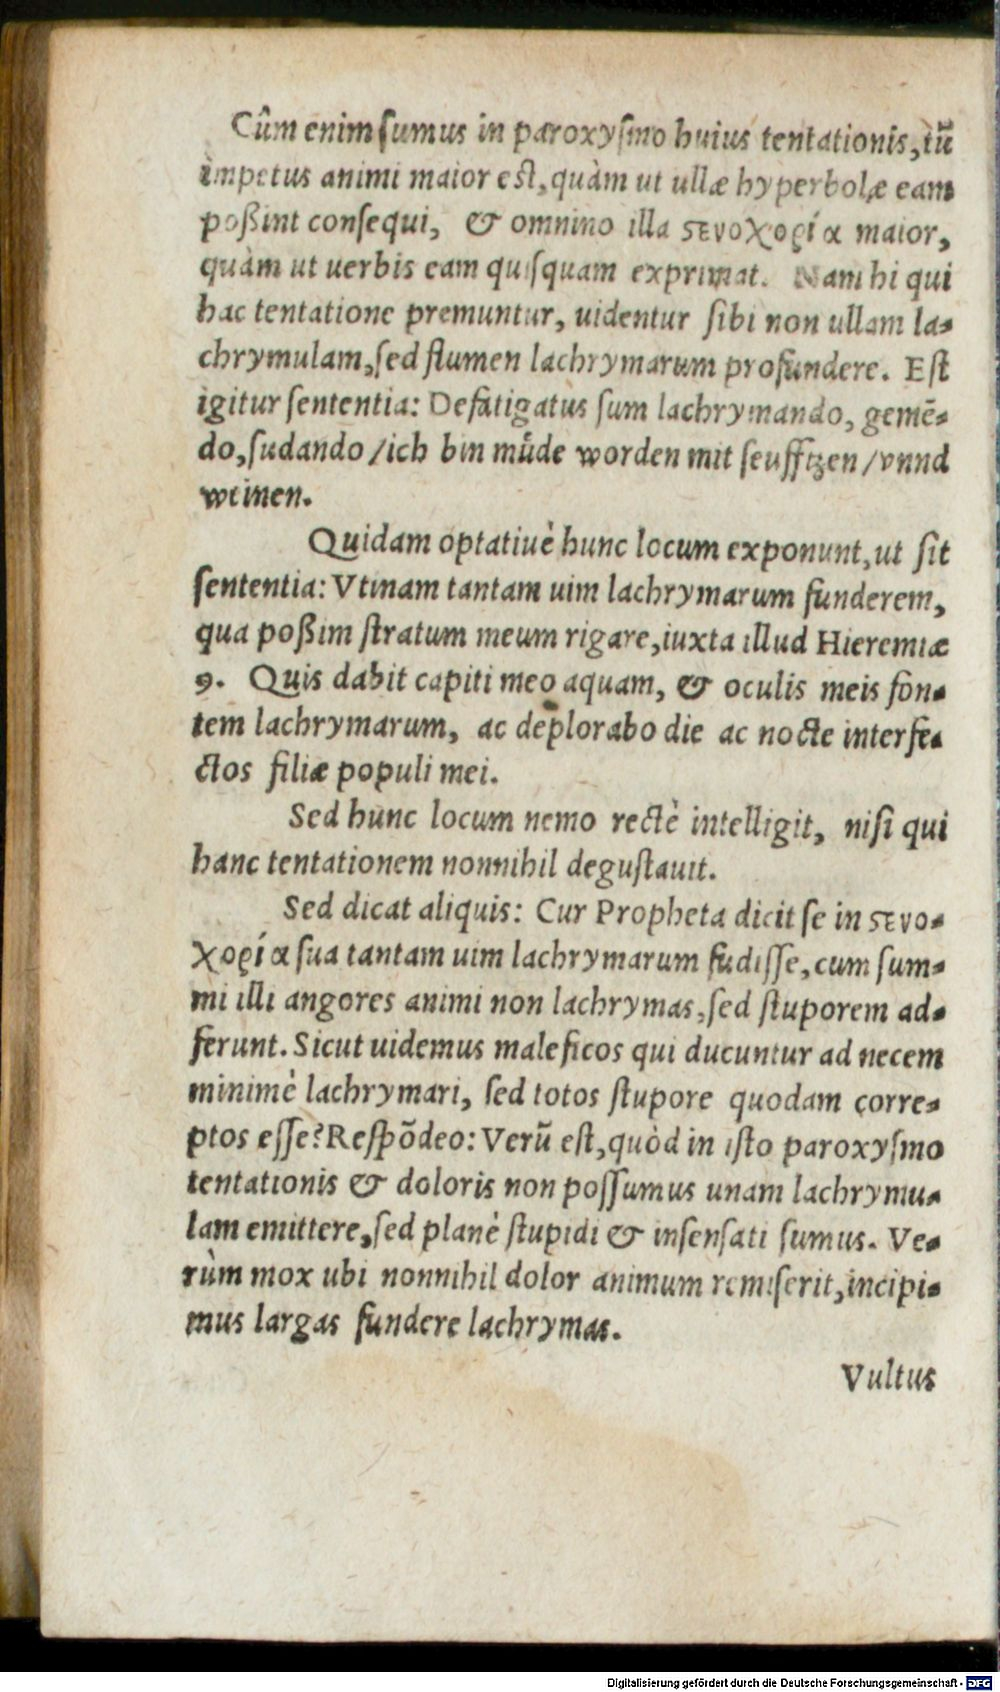 Cûm enim ſumus in paroxyſmo huius tentationis, tũ
impetus animi maior eſt, quàm ut ullæ hyperbolæ eam
poßint conſequi, & omnino illa ϛενοχοϱία maior,
quàm ut uerbis eam quiſquam exprimat. Nam hi qui
hac tentatione premuntur, uidentur ſibi non ullam la-
chrymulam, ſed flumen lachrymarum profundere. Eſt
igitur ſententia: Defatigatus ſum lachrymando, gemē-
do, ſudando / ich bin muͤde worden mit ſeufftzen / vnnd
weinen.
Quidam optatiuè hunc locum exponunt, ut ſit
ſententia: Vtinam tantam uim lachrymarum funderem,
qua poßim ſtratum meum rigare, iuxta illud Hieremiæ
9. Quis dabit capiti meo aquam, & oculis meis fon-
tem lachrymarum, ac deplorabo die ac nocte interfe-
ctos filiæ populi mei.
Sed hunc locum nemo rectè intelligit, niſi qui
hanc tentationem nonnihil deguſtauit.
Sed dicat aliquis: Cur Propheta dicit ſe in ϛενο-
χοϱία ſua tantam uim lachrymarum fudiſſe, cum ſum-
mi illi angores animi non lachrymas, ſed ſtuporem ad-
ferunt. Sicut uidemus maleficos qui ducuntur ad necem
minimè lachrymari, ſed totos ſtupore quodam corre-
ptos eſſe? Reſpōdeo: Verũ eſt, quòd in iſto paroxyſmo
tentationis & doloris non poſſumus unam lachrymu-
lam emittere, ſed planè ſtupidi & inſenſati ſumus. Ve-
rùm mox ubi nonnihil dolor animum remiſerit, incipi-
mus largas fundere lachrymas.
Vultus
Digitalisierung gefördert durch die Deutsche Forschungsgemeinschaft - DFG